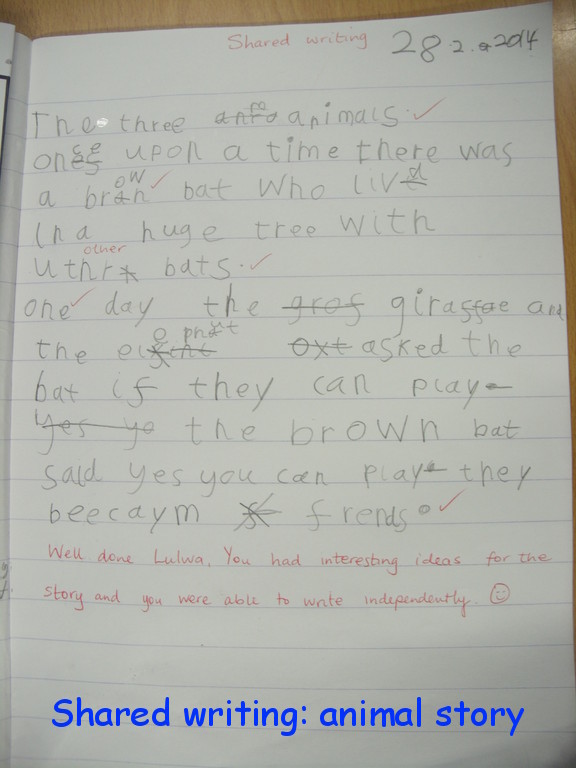 Shared writing 28.2.2014
The three anfo animals.
ones ce upon a time there was
a bran ow bat who livt d
in a huge tree with
other
uthr bats.
one day the grof giraffae and
the el e phant oxt asked the
bat if they can play
Yes yo the brown bat
said yes you can play they
beecaym frends.
Well done Lulwa. You had interesting ideas for the
story and you were able to write independently.
Shared writing: animal story